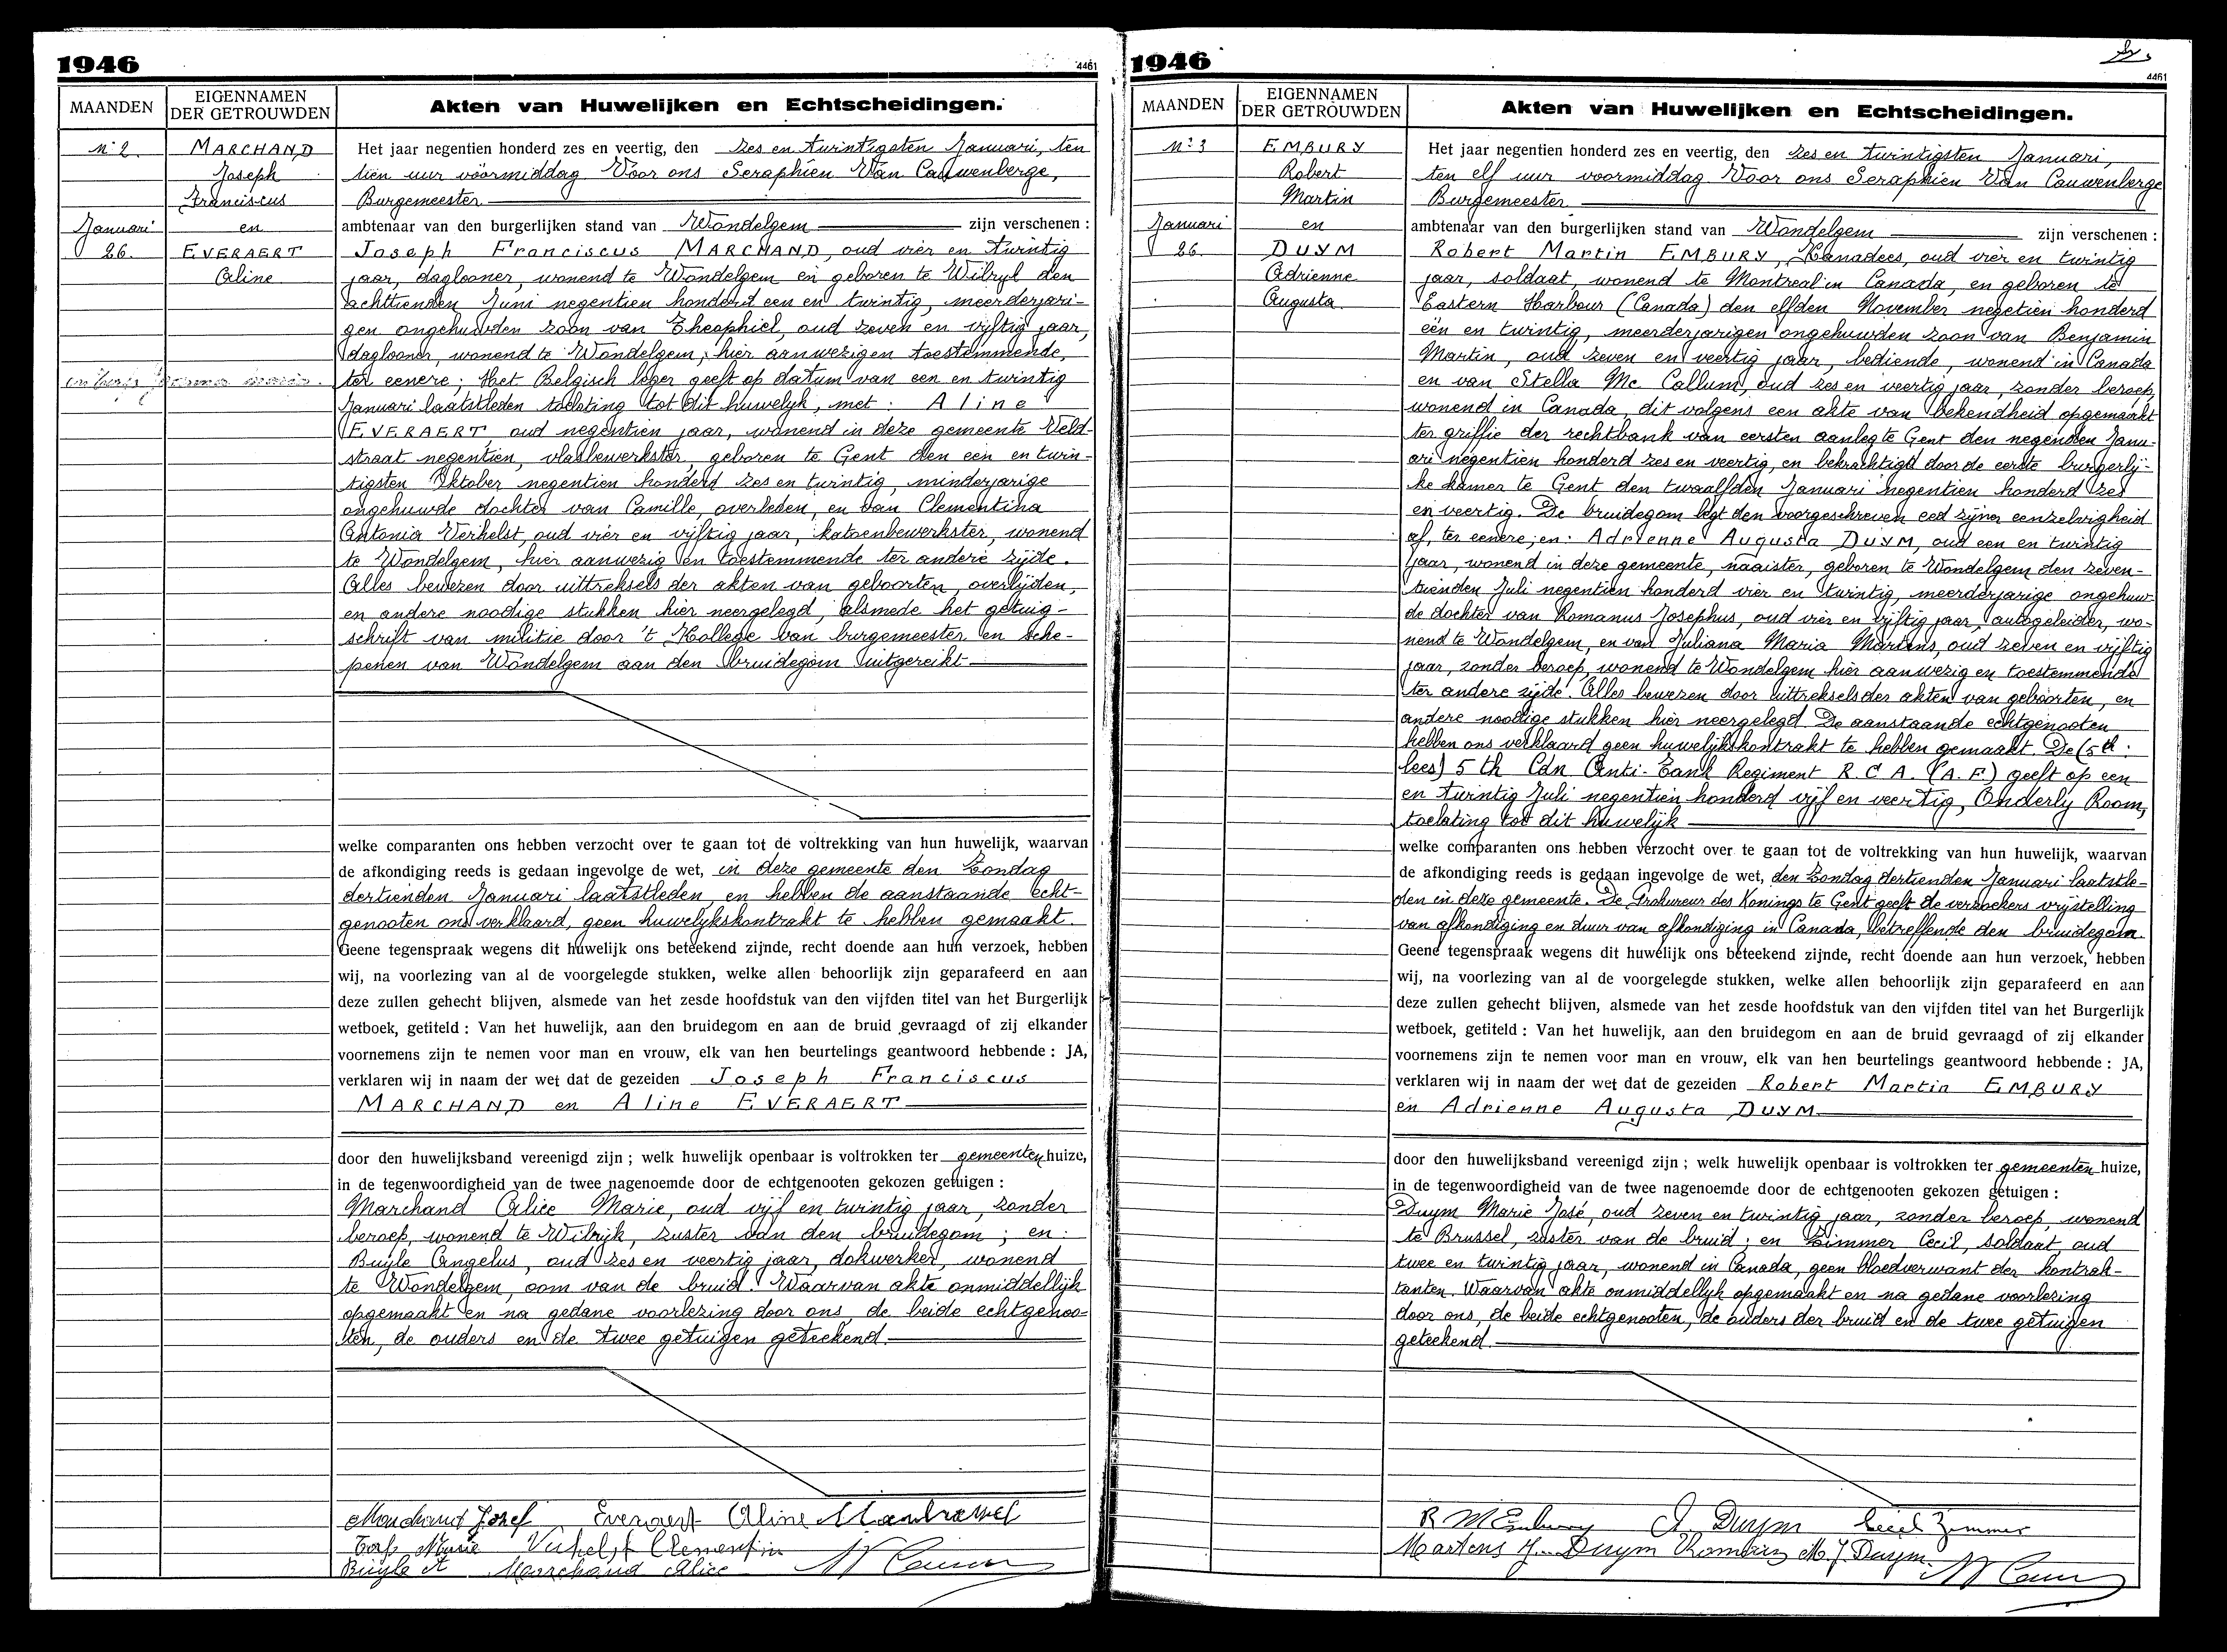 1946
4461
MAANDEN
EIGENNAMEN
DER GETROUWDEN
Akten van Huwelijken en Echtscheidingen.
N: 2.
MARCHAND
Joseph
Franciscus
Januari
en
26.
EVERAERT
Aline
Het jaar negentien honderd zes en veertig, den zes en twintigsten Januari, ten
tien uur vóórmiddag Voor ons Seraphien Van Cauwenberge,
Burgemeester
ambtenaar van den burgerlijken stand van Wondelgem zijn verschenen :
Joseph Franciscus MARCHAND, oud vier en twintig
jaar, daglooner, wonend te Wondelgem en geboren te Wilryk den
achttienden Juni negentien honderd een en twintig, meerderjari-
gen ongehuwden zoon van Theophiel, oud zeven en vijftig jaar,
daglooner, wonend te Wondelgem, hier aanwezigen toestemmende,
ter eenere; Het Belgisch leger geeft op datum van een en twintig
Januari laatstleden toelating tot dit huwelyk, met : Aline
EVERAERT, oud negentien jaar, wonend in deze gemeente Veld-
straat negentien, vlasbewerkster, geboren te Gent den een en twin-
tigsten Oktober negentien honderd zes en twintig, minderjarige
ongehuwde dochter van Camille, overleden, en van Clementina
Antonia Verhelst, oud vier en vijftig jaar, katoenbewerkster, wonend
te Wondelgem, hier aanwezig en toestemmende ter andere zijde.
Alles bewezen door uittreksels der akten van geboorten, overlijden,
en andere noodige stukken hier neergelegd, alsmede het getuig-
schrift van militie door 't Kollege van burgemeester en sche-
penen van Wondelgem aan den bruidegom uitgereikt
welke comparanten ons hebben verzocht over te gaan tot de voltrekking van hun huwelijk, waarvan
de afkondiging reeds is gedaan ingevolge de wet, in deze gemeente den Zondag
dertienden Januari laatstleden, en hebben de aanstaande echt-
genooten ons verklaard, geen huwelykskontrakt te hebben gemaakt.
Geene tegenspraak wegens dit huwelijk ons beteekend zijnde, recht doende aan hun verzoek, hebben
wij, na voorlezing van al de voorgelegde stukken, welke allen behoorlijk zijn geparafeerd en aan
deze zullen gehecht blijven, alsmede van het zesde hoofdstuk van den vijfden titel van het Burgerlijk
wetboek, getiteld : Van het huwelijk, aan den bruidegom en aan de bruid gevraagd of zij elkander
voornemens zijn te nemen voor man en vrouw, elk van hen beurtelings geantwoord hebbende : JA,
verklaren wij in naam der wet dat de gezeiden Joseph Franciscus
MARCHAND en Aline EVERAERT
door den huwelijksband vereenigd zijn ; welk huwelijk openbaar is voltrokken ter gemeenten huize,
in de tegenwoordigheid van de twee nagenoemde door de echtgenooten gekozen getuigen :
Marchand Alice Marie, oud vijf en twintig jaar, zonder
beroep, wonend te Wilrijk, zuster van den bruidegom ; en :
Buyle Angelus, oud zes en veertig jaar, dokwerker, wonend
te Wondelgem, oom van de bruid. Waarvan akte onmiddellijk
opgemaakt en na gedane voorlezing door ons, de beide echtgenoo-
ten, de ouders en de twee getuigen geteekend.
Marchand Jozef Everaert Aline
Marie Verhelst Clementin
Buyle A Marchand Alice
1946
4461
MAANDEN
EIGENNAMEN
DER GETROUWDEN
Akten van Huwelijken en Echtscheidingen.
N: 3
EMBURY
Robert
Martin
Januari
en
26.
DUYM
Adrienne
Augusta.
Het jaar negentien honderd zes en veertig, den zes en twintigsten Januari,
ten elf uur voormiddag Voor ons Seraphien Van Cauwenberge
Burgemeester
ambtenaar van den burgerlijken stand van Wondelgem zijn verschenen :
Robert Martin EMBURY, Kanadees, oud vier en twintig
jaar, soldaat, wonend te Montreal in Canada, en geboren te
Eastern Harbour (Canada) den elfden November negetien honderd
een en twintig, meerderjarigen ongehuwden zoon van Benjamin
Martin, oud zeven en veertig jaar, bediende, wonend in Canada
en van Stella Mc. Collum, oud zes en veertig jaar, zonder beroep,
wonend in Canada, dit volgens een akte van bekendheid opgemaakt
ter griffie der rechtbank van eersten aanleg te Gent den negenden Janu-
ari negentien honderd zes en veertig, en bekrachtigd door de eerste burgerlij-
ke kamer te Gent den twaalfden Januari negentien honderd zes
en veertig. De bruidegom legt den voorgeschreven eed zijner eenzelvigheid
af, ter eenere; en: Adrienne Augusta DUYM, oud een en twintig
jaar, wonend in deze gemeente, naaister, geboren te Wondelgem den zeven-
tienden Juli negentien honderd vier en twintig, meerderjarige ongehuw-
de dochter van Romanus Josephus, oud vier en vijftig jaar, autogeleider, wo-
nend te Wondelgem, en van Juliana Maria Martens, oud zeven en vijftig
jaar, zonder beroep, wonend te Wondelgem hier aanwezig en toestemmende
ter andere zijde. Alles bewezen door uittreksels der akten van geboorten, en
andere noodige stukken hier neergelegd. De aanstaande echtgenooten
hebben ons verklaard geen huwelijkskontrakt te hebben gemaakt. De (5th :
lees) 5 th Cdn Anti-Tank Regiment R. C A. (A. F.) geeft op een
en twintig Juli negentien honderd vijf en veertig, Onderly Room,
toelating tot dit huwelijk
welke comparanten ons hebben verzocht over te gaan tot de voltrekking van hun huwelijk, waarvan
de afkondiging reeds is gedaan ingevolge de wet, den Zondag dertienden Januari laatstle-
den in deze gemeente. De Prokureur des Konings te Gent geeft de verzoekers vrijstelling
van afkondiging en duur van afkondiging in Canada, betreffende den bruidegom.
Geene tegenspraak wegens dit huwelijk ons beteekend zijnde, recht doende aan hun verzoek, hebben
wij, na voorlezing van al de voorgelegde stukken, welke allen behoorlijk zijn geparafeerd en aan
deze zullen gehecht blijven, alsmede van het zesde hoofdstuk van den vijfden titel van het Burgerlijk
wetboek, getiteld : Van het huwelijk, aan den bruidegom en aan de bruid gevraagd of zij elkander
voornemens zijn te nemen voor man en vrouw, elk van hen beurtelings geantwoord hebbende : JA,
verklaren wij in naam der wet dat de gezeiden Robert Martin EMBURY
en Adrienne Augusta DUYM
door den huwelijksband vereenigd zijn ; welk huwelijk openbaar is voltrokken ter gemeenten huize,
in de tegenwoordigheid van de twee nagenoemde door de echtgenooten gekozen getuigen :
Duym Marie José, oud zeven en twintig jaar, zonder beroep, wonend
te Brussel, zuster van de bruid ; en Zimmer Cecil, soldaat, oud
twee en twintig jaar, wonend in Canada, geen bloedverwant der kontrak-
tanten. Waarvan akte onmiddellyk opgemaakt en na gedane voorlezing
door ons, de beide echtgenooten, de ouders der bruid en de twee getuigen
geteekend.
R M Embury A Duym Cecil Zimmer
Martens J. Duym M. J Duym.